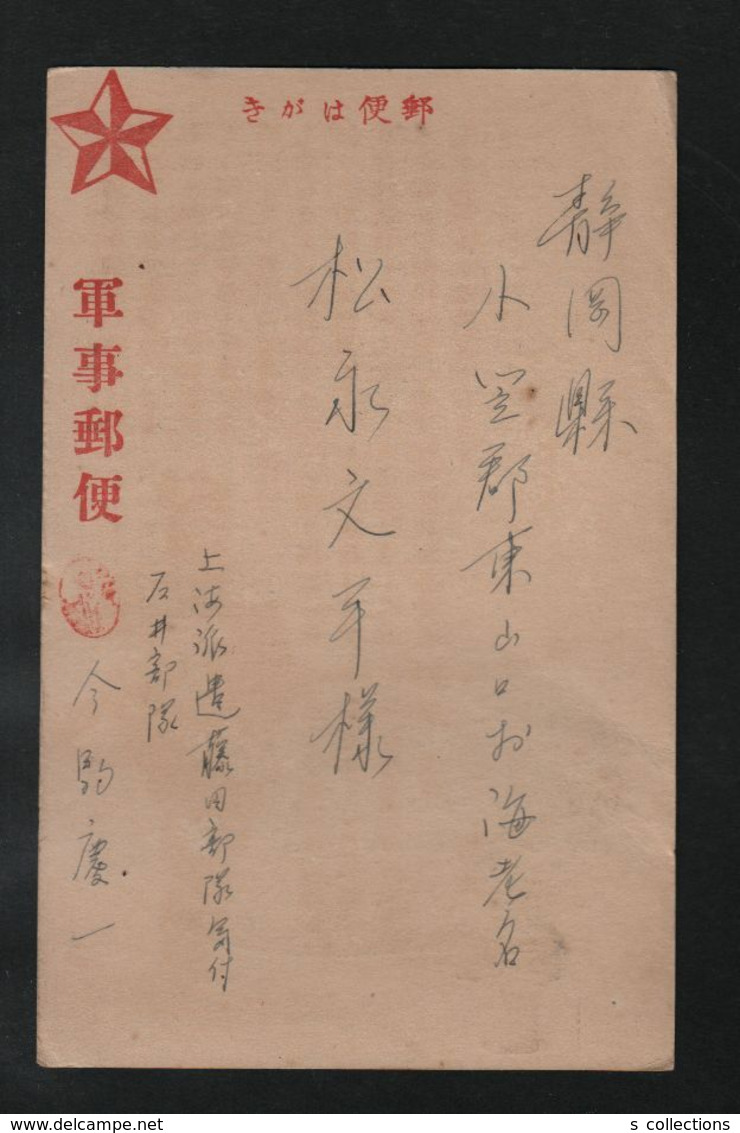 郵便はがき
静岡縣
小笠郡東山口村海老名
松永文平様
軍事郵便
上海派遣藤田部隊気付
石井部隊
今駒慶一
delcampe.net
s collections